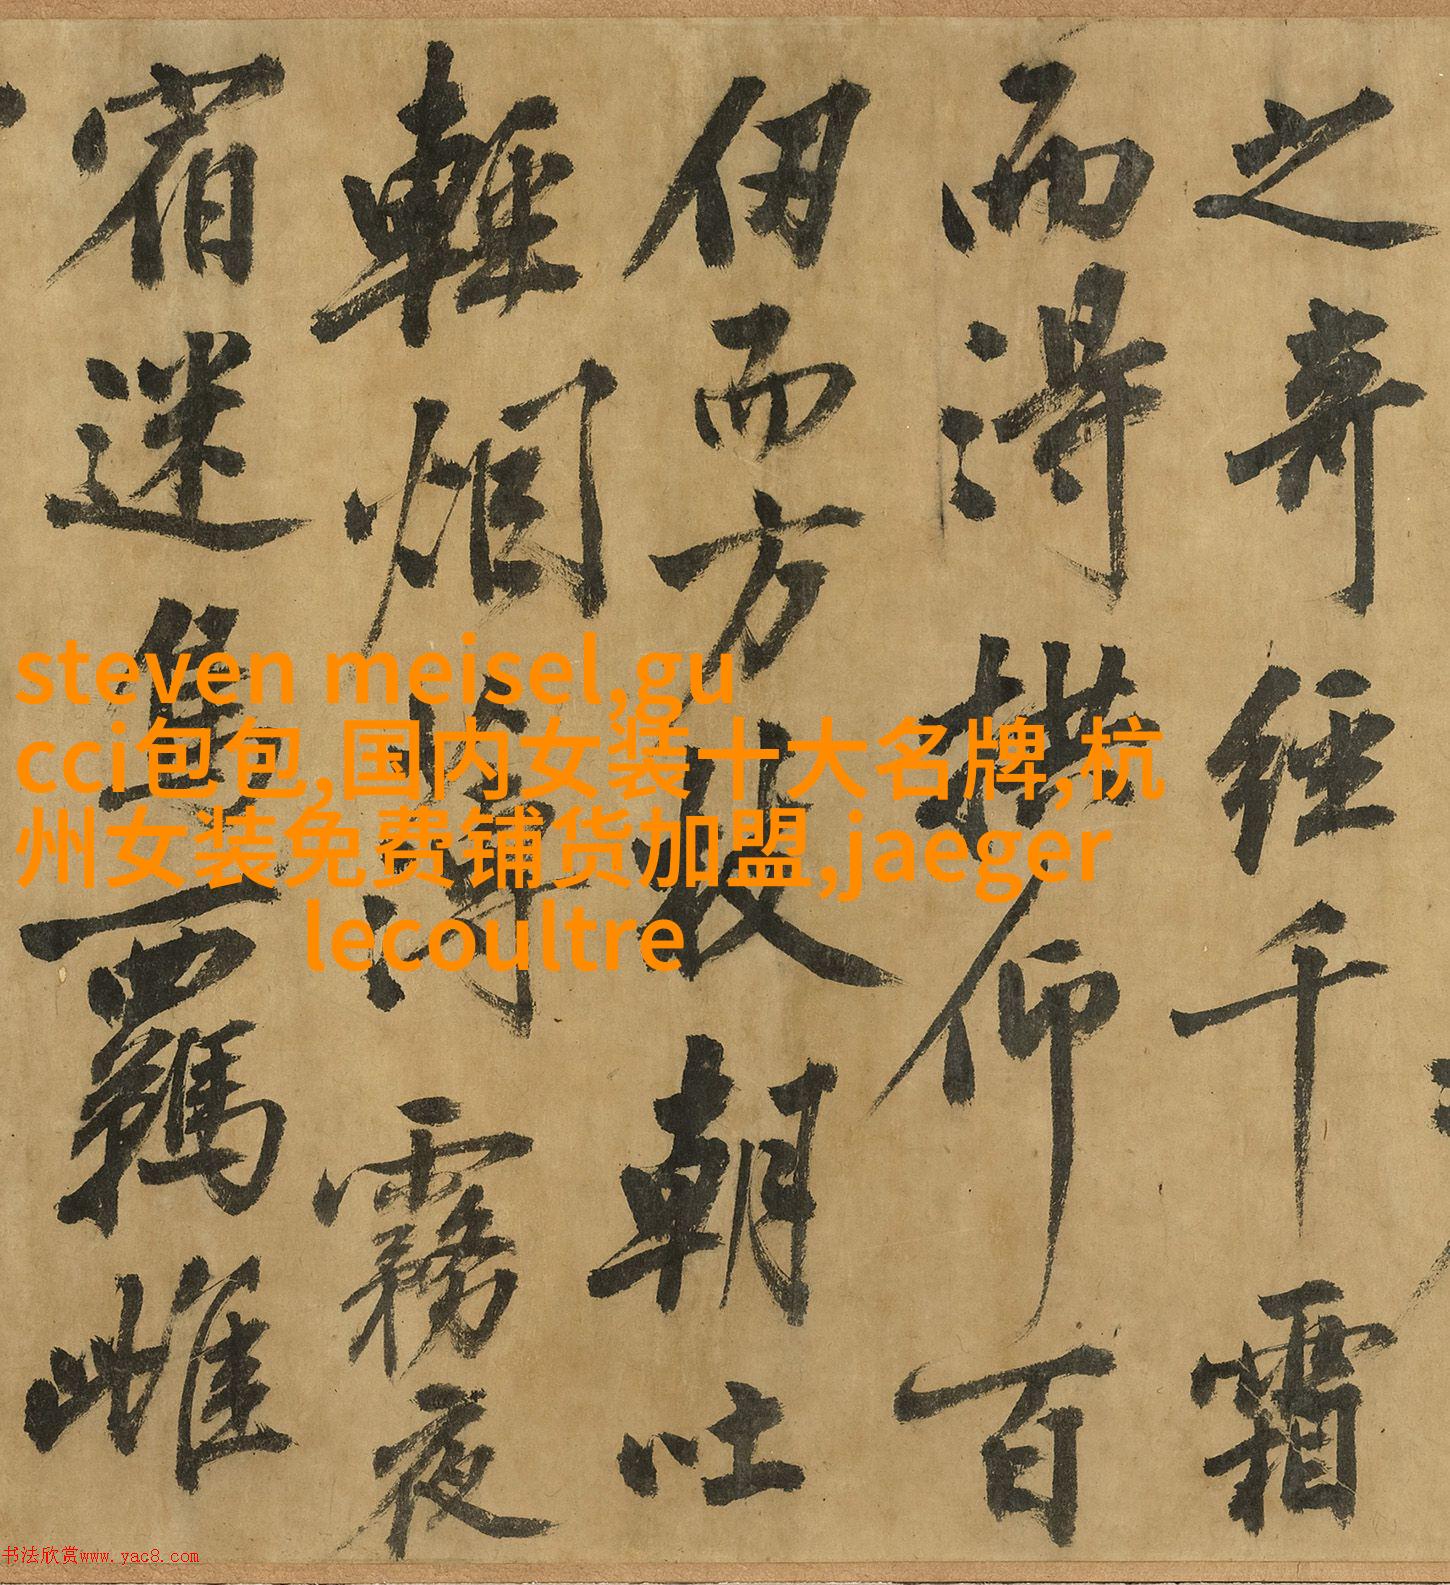 之奇經千霜
而得拱仰百
仞而方枝朝吐
輕烟薄霧夜
宿迷羈雌
steven meisel,gu
cci包包,国内女装十大名牌,杭
州女装免费铺货加盟,jaeger
lecoultre
书法欣赏www.yac8.com